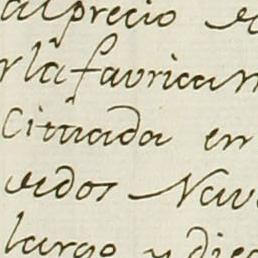 al precio
r la favrica
Cituada en
ados Nav
largo y die